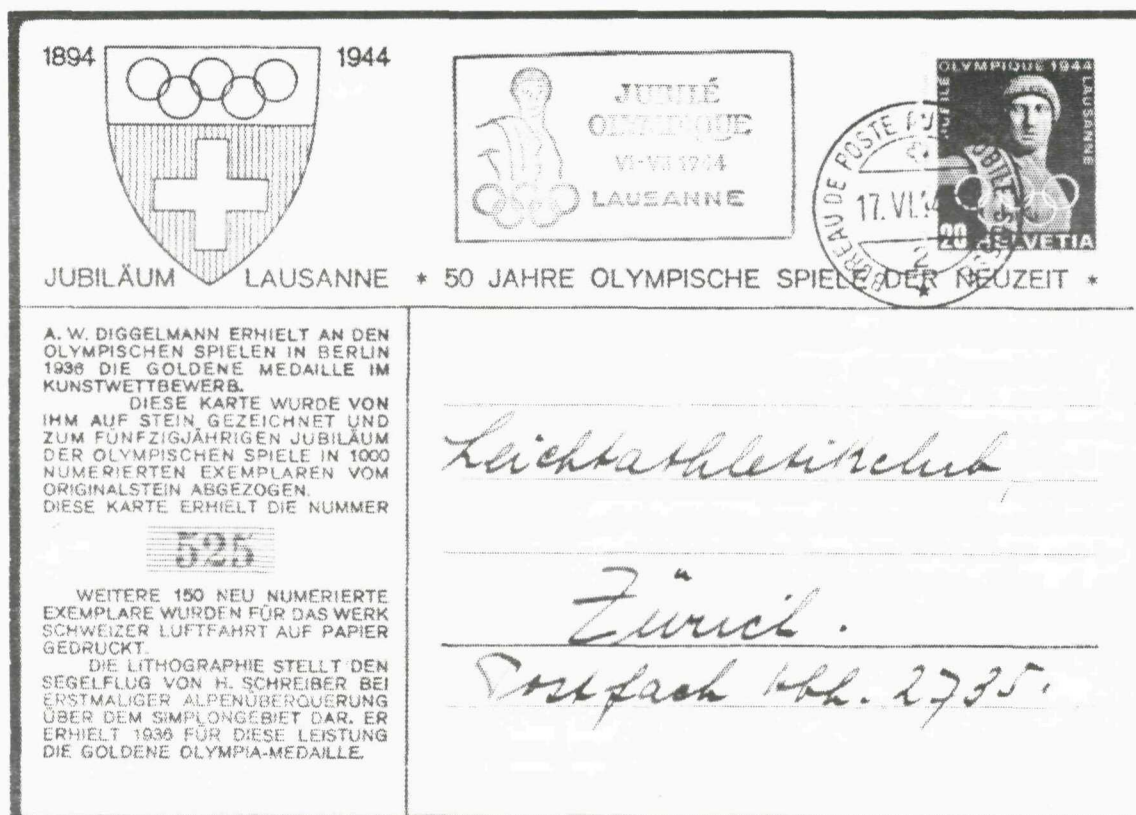 1894 1944
JUBILÉ
OLYMPIQUE
VI-VII 1944
LAUSANNE
OLYMPIQUE 1944
LAUSANNE
BUREAU DE POSTE AUTOMOBILE SUISSE
17.VI.
2
20 HELVETIA
JUBILÄUM LAUSANNE * 50 JAHRE OLYMPISCHE SPIELE DER NEUZEIT *
A. W. DIGGELMANN ERHIELT AN DEN
OLYMPISCHEN SPIELEN IN BERLIN
1936 DIE GOLDENE MEDAILLE IM
KUNSTWETTBEWERB.
DIESE KARTE WURDE VON
IHM AUF STEIN GEZEICHNET UND
ZUM FÜNFZIGJÄHRIGEN JUBILÄUM
DER OLYMPISCHEN SPIELE IN 1000
NUMERIERTEN EXEMPLAREN VOM
ORIGINALSTEIN ABGEZOGEN.
DIESE KARTE ERHIELT DIE NUMMER
525
WEITERE 150 NEU NUMERIERTE
EXEMPLARE WURDEN FÜR DAS WERK
SCHWEIZER LUFTFAHRT AUF PAPIER
GEDRUCKT.
DIE LITHOGRAPHIE STELLT DEN
SEGELFLUG VON H. SCHREIBER BEI
ERSTMALIGER ALPENÜBERQUERUNG
ÜBER DEM SIMPLONGEBIET DAR. ER
ERHIELT 1936 FÜR DIESE LEISTUNG
DIE GOLDENE OLYMPIA-MEDAILLE.
Leichtathletikclub,
Zürich.
Postfach Hbh. 2735.